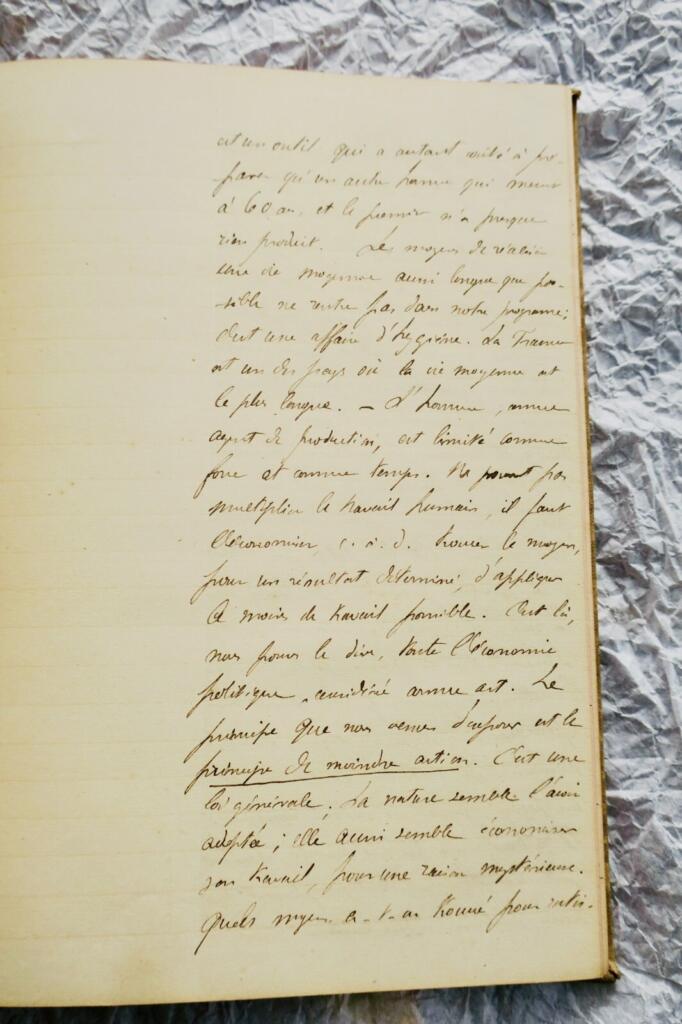 est un outil qui a autant coûté à pré-
parer qu'un autre homme qui meurt
à 60 ans, et le premier n'a presque
rien produit. Les moyens de réaliser
une vie moyenne aussi longue que pos-
sible ne rentre pas dans notre programme;
c'est une affaire d'hygiène. La France
est un des pays où la vie moyenne est
le plus longue. — L'homme, comme
agent de production, est limité comme
force et comme temps. Ne pouvant pas
multiplier le travail humain, il faut
l'économiser, c. à. d. trouver le moyen,
pour un résultat déterminé, d'appliquer
le moins de travail possible. C'est là,
nous pouvons le dire, toute l'économie
politique, considérée comme art. Le
principe que nous venons d'exposer est le
principe de moindre action. C'est une
loi générale. La nature semble l'avoir
adoptée; elle aussi semble économiser
son travail, pour une raison mystérieuse.
Quels moyens a-t-on trouvé pour